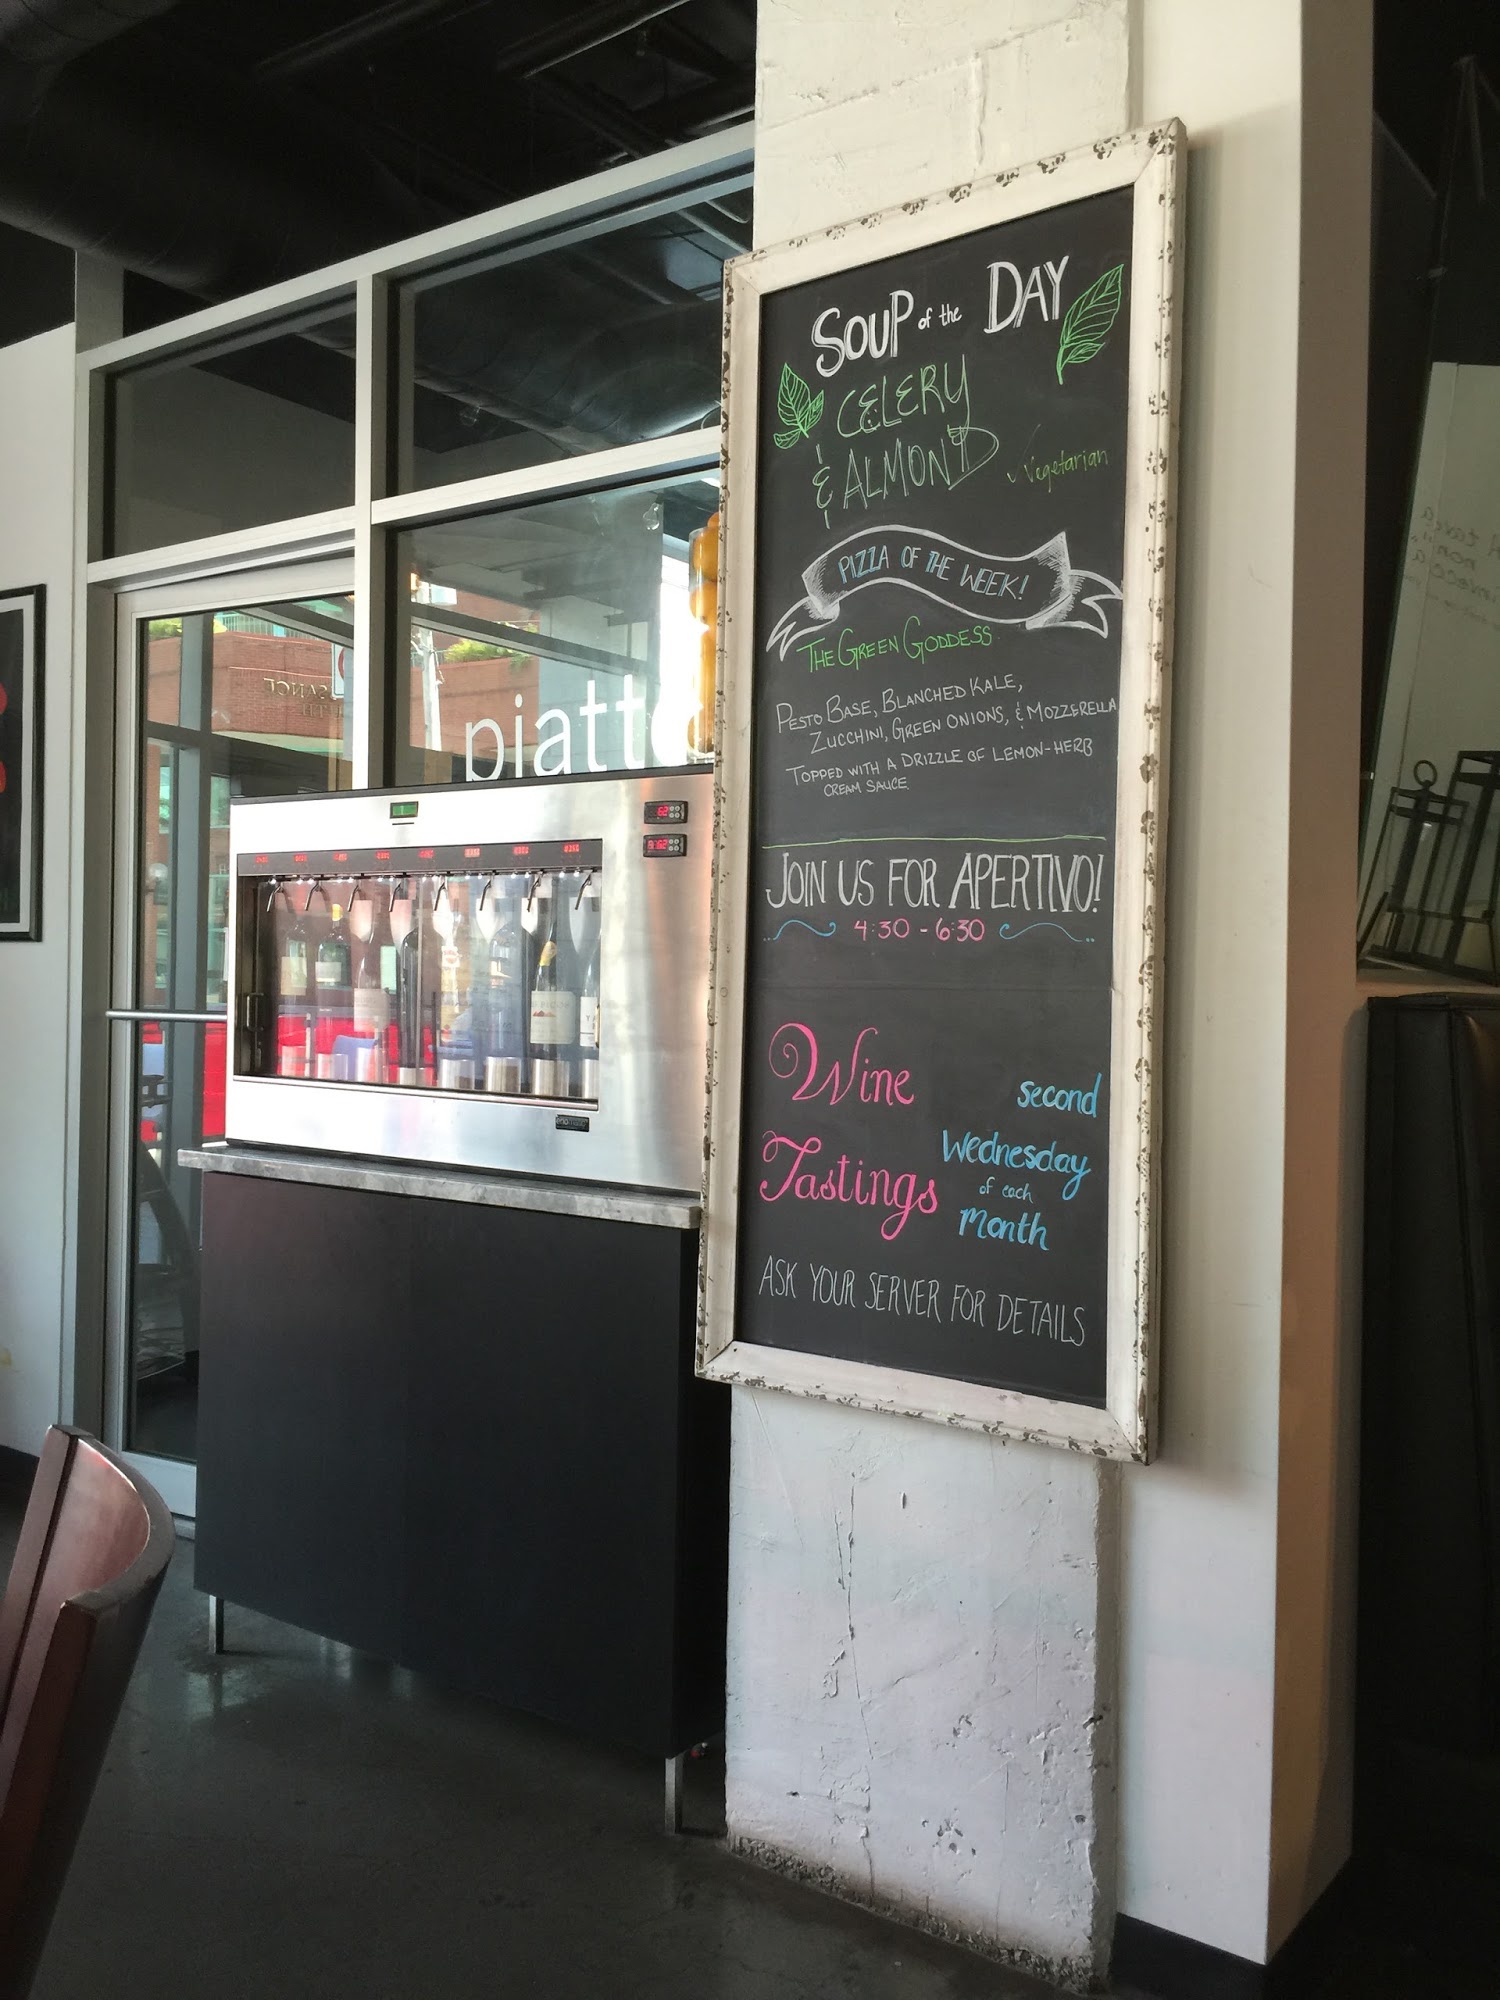 SOUP of the DAY
CELERY
& ALMOND
✓Vegetarian
PIZZA OF THE WEEK!
THE GREEN GODDESS
PESTO BASE, BLANCHED KALE,
ZUCCHINI, GREEN ONIONS, & MOZZERELLA
TOPPED WITH A DRIZZLE OF LEMON-HERB
CREAM SAUCE
JOIN US FOR APERTIVO!
4:30 - 6:30
Wine
Tastings
second
Wednesday
of each
Month
ASK YOUR SERVER FOR DETAILS
piatto
enomatic